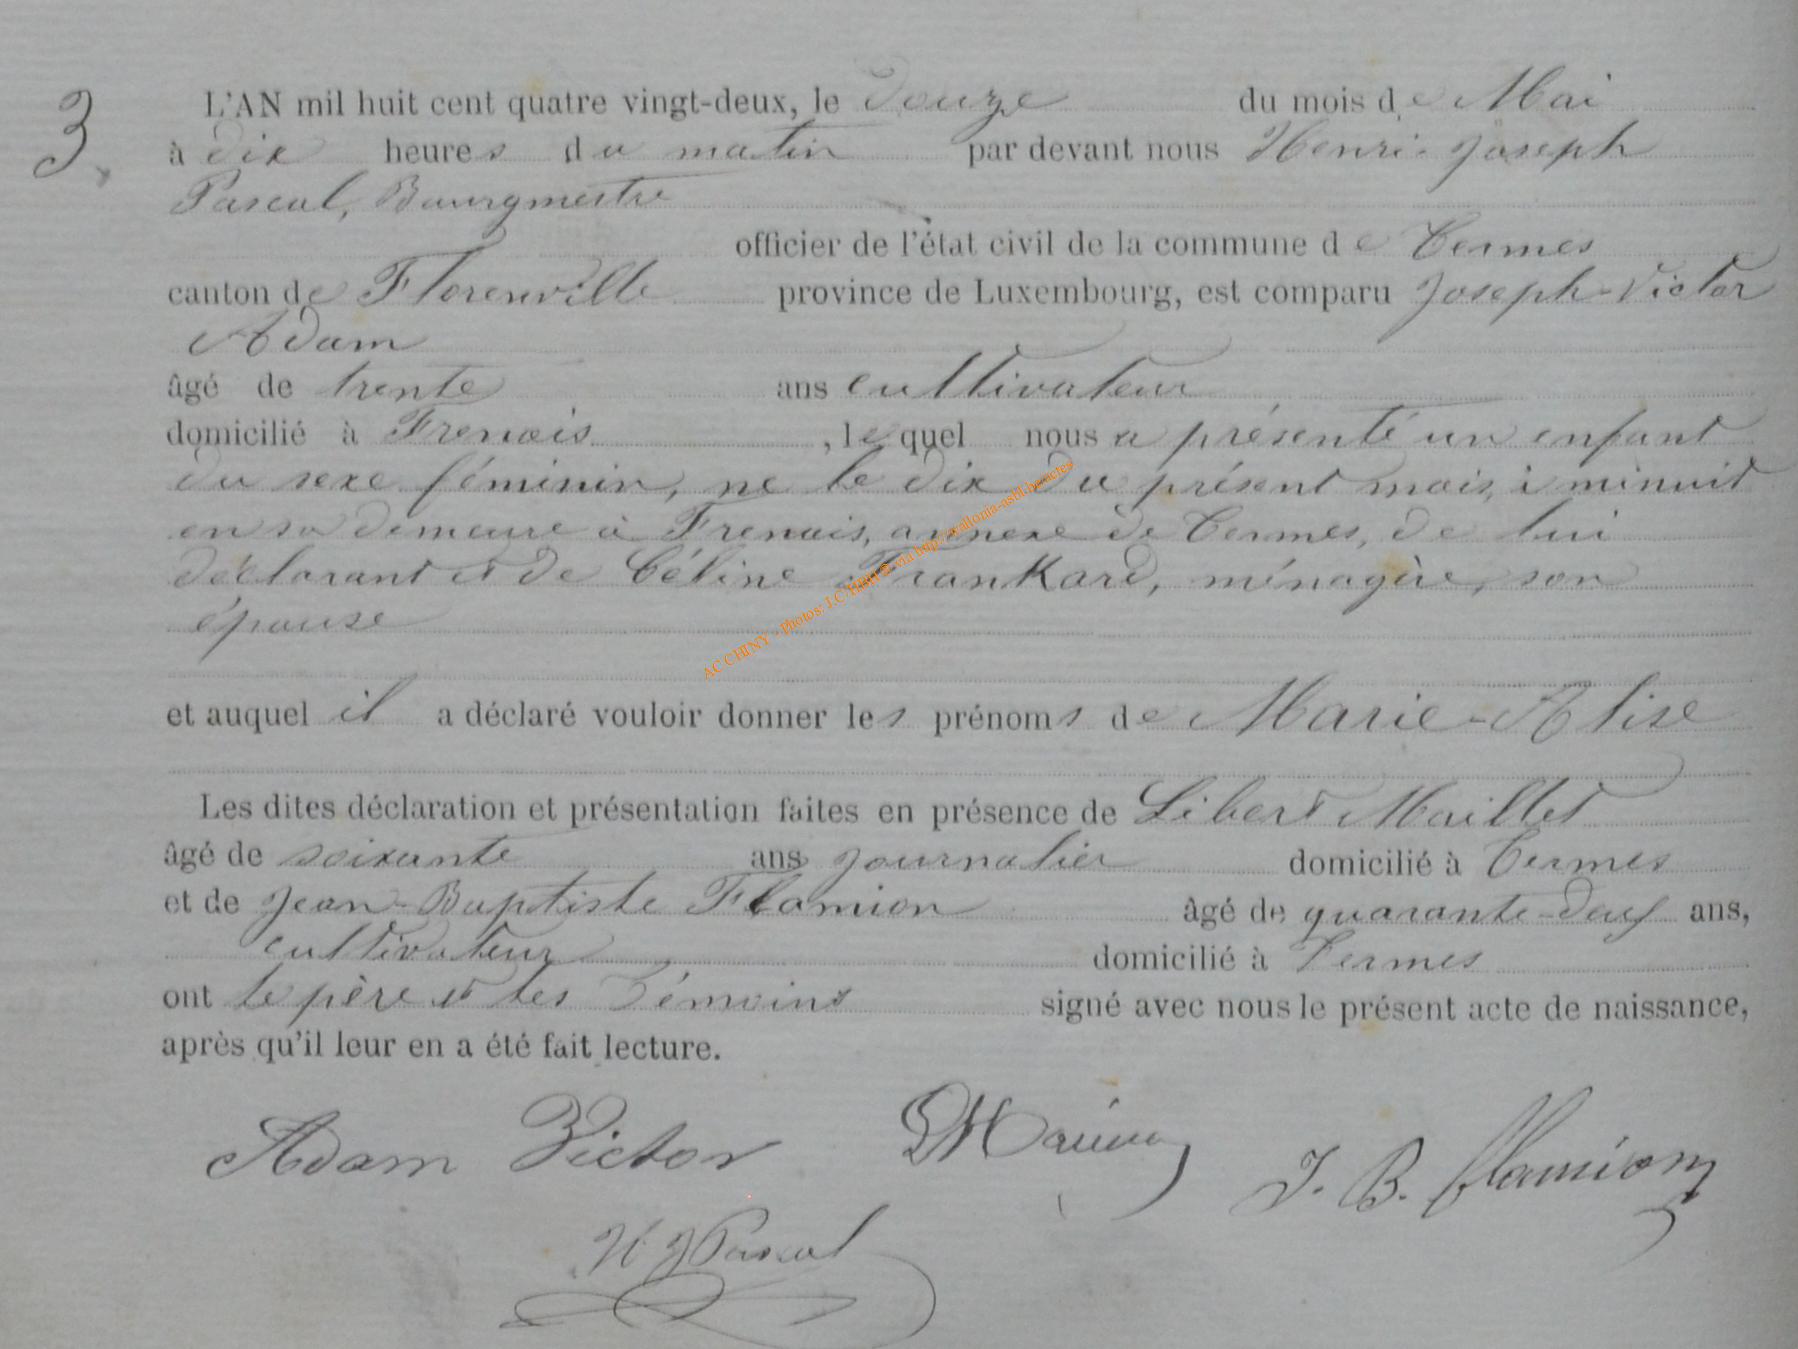 3.
L'AN mil huit cent quatre vingt-deux, le douze du mois de Mai
à dix heures du matin par devant nous Henri-Joseph
Pascal, Bourgmestre
officier de l'état civil de la commune de Termes
canton de Florenville province de Luxembourg, est comparu Joseph-Victor
Adam
âgé de trente ans cultivateur
domicilié à Frenois, lequel nous a présenté un enfant
du sexe féminin, né le dix du présent mois, à minuit
en sa demeure à Frenois, annexe de Termes, de lui
déclarant et de Céline Frankard, ménagère, son
épouse
et auquel il a déclaré vouloir donner les prénoms de Marie-Alise
Les dites déclaration et présentation faites en présence de Libert Maillet
âgé de soixante ans journalier domicilié à Termes
et de Jean-Baptiste Flamion âgé de quarante-deux ans,
cultivateur domicilié à Termes
ont le père et les témoins signé avec nous le présent acte de naissance,
après qu'il leur en a été fait lecture.
Adam Victor J. B. flamion
H J Pascal
AC CHINY - Photos: J.C.